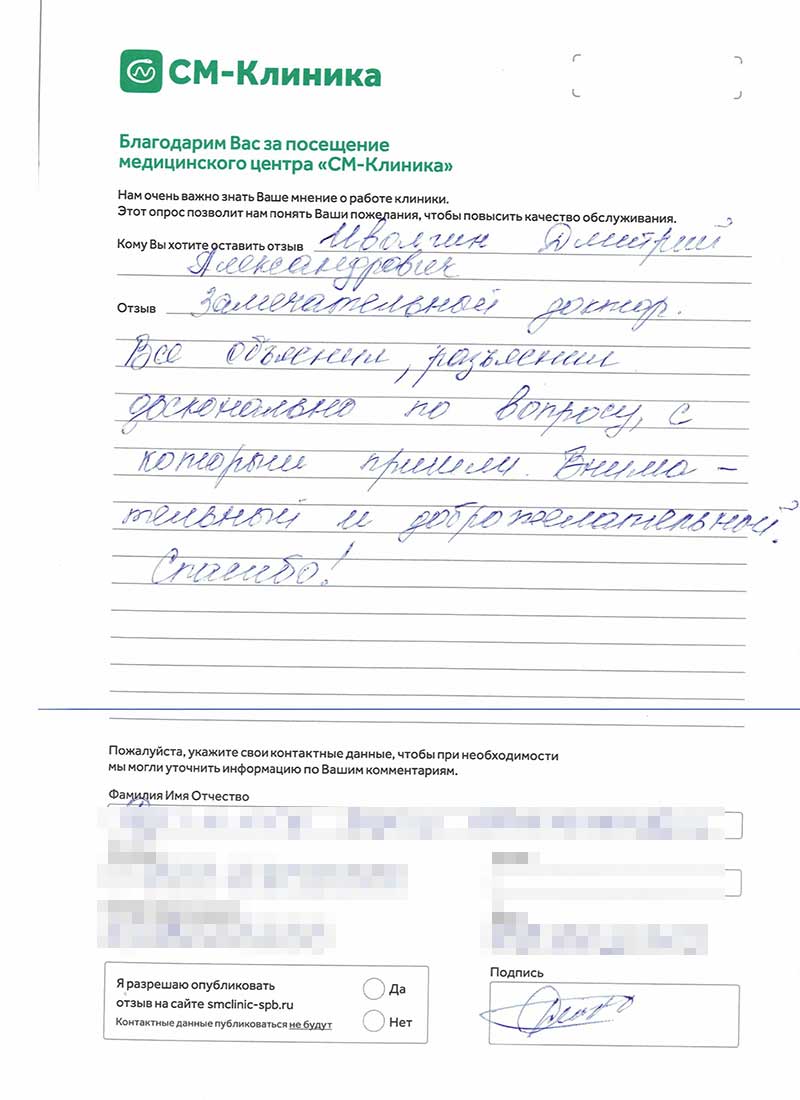 СМ-Клиника
Благодарим Вас за посещение
медицинского центра «СМ-Клиника»
Нам очень важно знать Ваше мнение о работе клиники.
Этот опрос позволит нам понять Ваши пожелания, чтобы повысить качество обслуживания.
Кому Вы хотите оставить отзыв Иволгин Дмитрий
Александрович
Отзыв Замечательный доктор.
Все объяснил, разъяснил
досконально по вопросу, с
которым пришли. Внима-
тельный и доброжелательный.
Спасибо!
Пожалуйста, укажите свои контактные данные, чтобы при необходимости
мы могли уточнить информацию по Вашим комментариям.
Фамилия Имя Отчество
Подпись
Я разрешаю опубликовать
отзыв на сайте smclinic-spb.ru
Контактные данные публиковаться не будут
Да
Нет